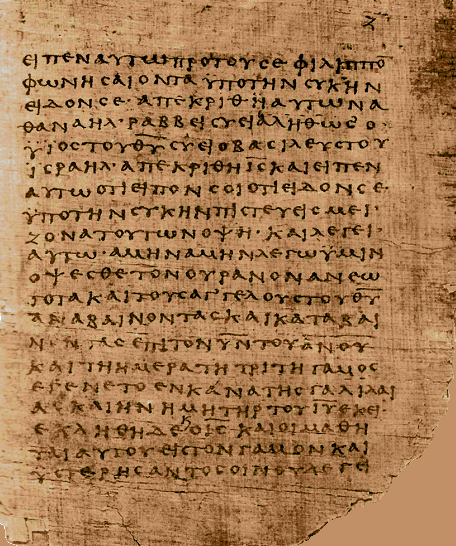 Ζ
ΕΙΠΕΝΑΥΤΩΠΡΟΤΟΥϹΕΦΙΛΙΠΠΟ̅
ΦΩΝΗϹΑΙΟΝΤΑΥΠΟΤΗΝϹΥΚΗΝ
ΕΙΔΟΝϹΕ·ΑΠΕΚΡΙΘΗΑΥΤΩΝΑ
ΘΑΝΑΗΛ·ΡΑΒΒΕΙϹΥΕΙΑΛΗΘΩϹΟ·
ΥΙΟϹΤΟΥΘ̅Υ̅ϹΥΕΙΟΒΑϹΙΛΕΥϹΤΟΥ
ΙϹΡΑΗΛ·ΑΠΕΚΡΙΘΗΙ̅Ϲ̅ΚΑΙΕΙΠΕΝ
ΑΥΤΩΟΤΙΕΙΠΟΝϹΟΙΟΤΙΕΙΔΟΝϹΕ·
ΥΠΟΤΗΝϹΥΚΗΝΠΙϹΤΕΥΕΙϹΜΕΙ·
ΖΟΝΑΤΟΥΤΩΝΟΨΗ·ΚΑΙΛΕΓΕΙ·
ΑΥΤΩ·ΑΜΗΝΑΜΗΝΛΕΓΩΥΜΙΝ
ΟΨΕϹΘΕΤΟΝΟΥΡΑΝΟΝΑΝΕΩ
ΓΟΤΑΚΑΙΤΟΥϹΑΓΓΕΛΟΥϹΤΟΥΘ̅Υ̅
ΑΝΑΒΑΙΝΟΝΤΑϹΚΑΙΚΑΤΑΒΑΙ
ΝΟΝΤΑϹΕΠΙΤΟΝΥ̅Ν̅ΤΟΥΑ̅Ν̅Ο̅Υ̅
ΚΑΙΤΗΗΜΕΡΑΤΗΤΡΙΤΗΓΑΜΟϹ
ΕΓΕΝΕΤΟΕΝΚΑΝΑΤΗϹΓΑΛΙΛΑΙ
ΑϹΚΑΙΗΝΗΜΗΤΗΡΤΟΥΙ̅Υ̅ΕΚΕΙ·
ΕΚΛΗΘΗΔΕΟΙ̅Ϲ̅ΚΑΙΟΙΜΑΘΗ
ΤΑΙΑΥΤΟΥΕΙϹΤΟΝΓΑΜΟΝΚΑΙ
ΥϹΤΕΡΗϹΑΝΤΟϹΟΙΝΟΥΛΕΓΕΙ